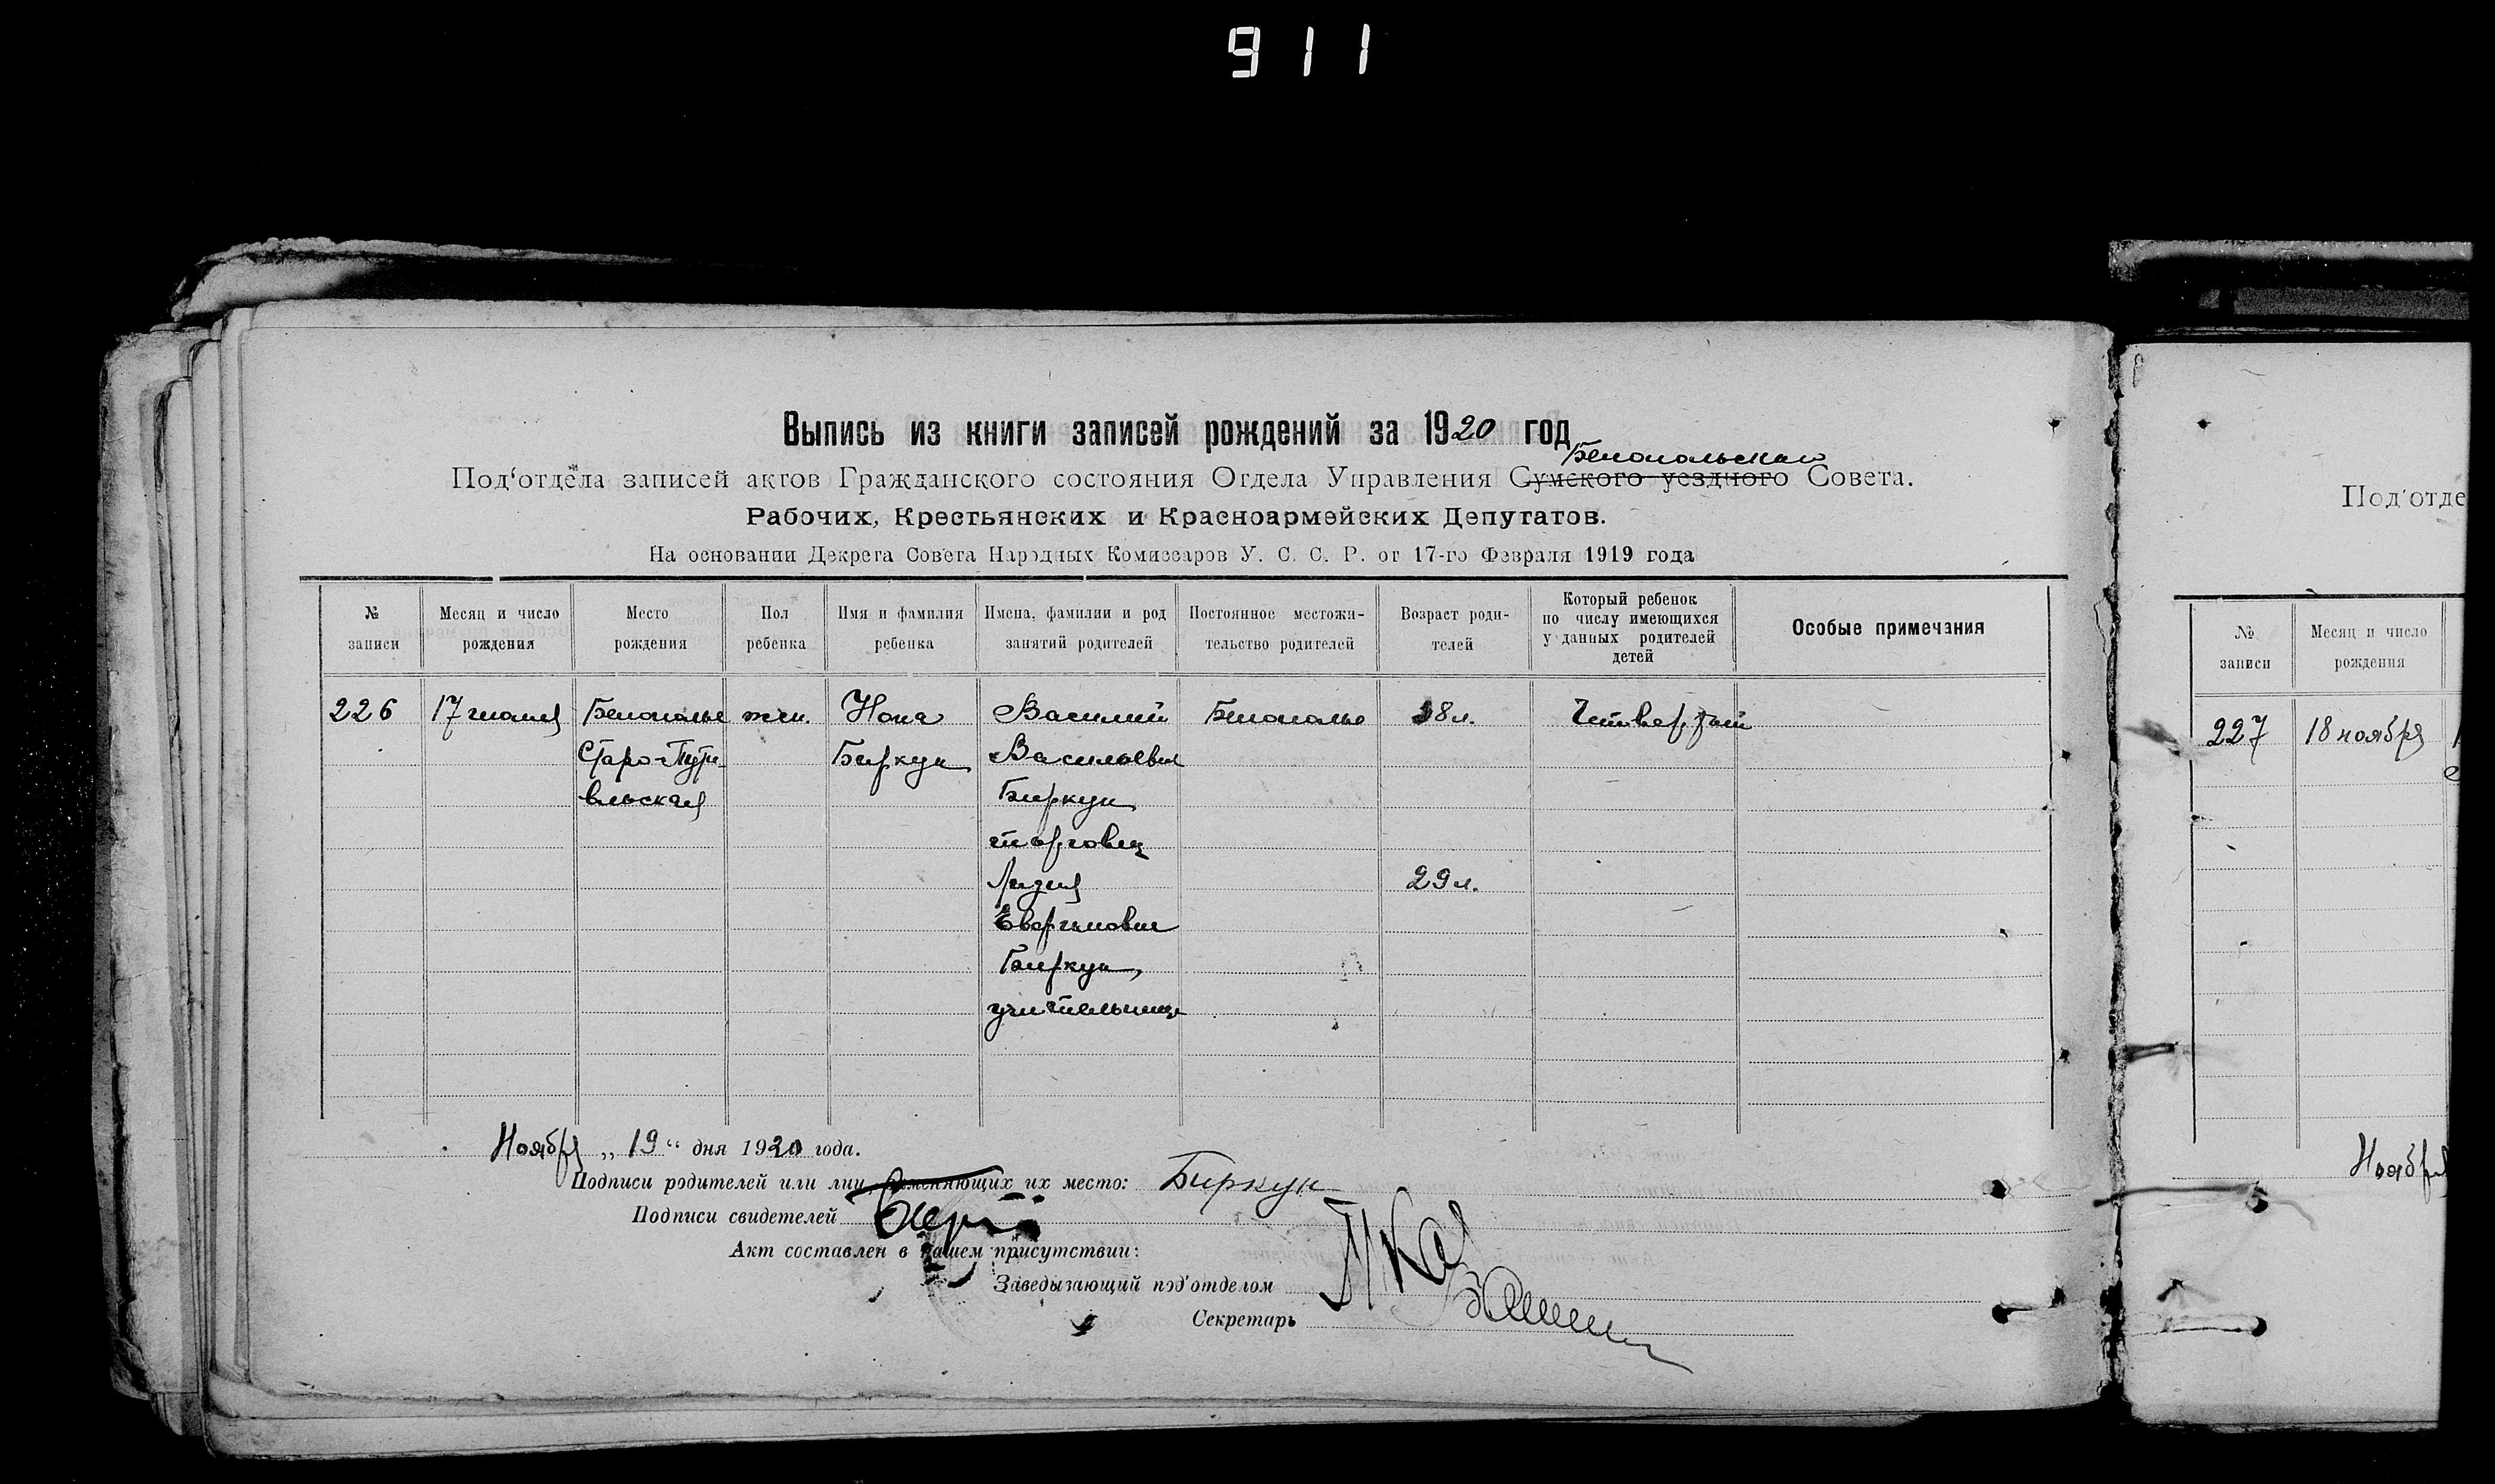 911
Выпись из книги записей рождений за 1920 год
Белопольского
Под‘отдела записей актов Гражданского состояния Отдела Управления Сумского уездного Совета.
Рабочих, Крестьянских и Красноармейских Депутатов.
На основании Декрета Совета Народных Комиссаров У. С. С. Р. от 17-го Февраля 1919 года
№ записи
Месяц и число рождения
Место рождения
Пол ребенка
Имя и фамилия ребенка
Имена, фамилии и род занятий родителей
Постоянное местожительство родителей
Возраст родителей
Который ребенок по числу имеющихся у данных родителей детей
Особые примечания
226 17 июля Белополье жен. Нона Василий Белополье 38 л. Четвертый
Старо-Пути- Биркун Васильевич
вльская Биркун
торговец
Лидия 29 л.
Биркун,
учительница
Ноября „ 19 “ дня 1920 года.
Подписи родителей или лиц заменяющих их место: Биркун
Подписи свидетелей
Акт составлен в нашем присутствии:
Заведывающий под'отделом
Секретарь
Под'отде
№ записи
Месяц и число рождения
227 18 ноября
Ноября